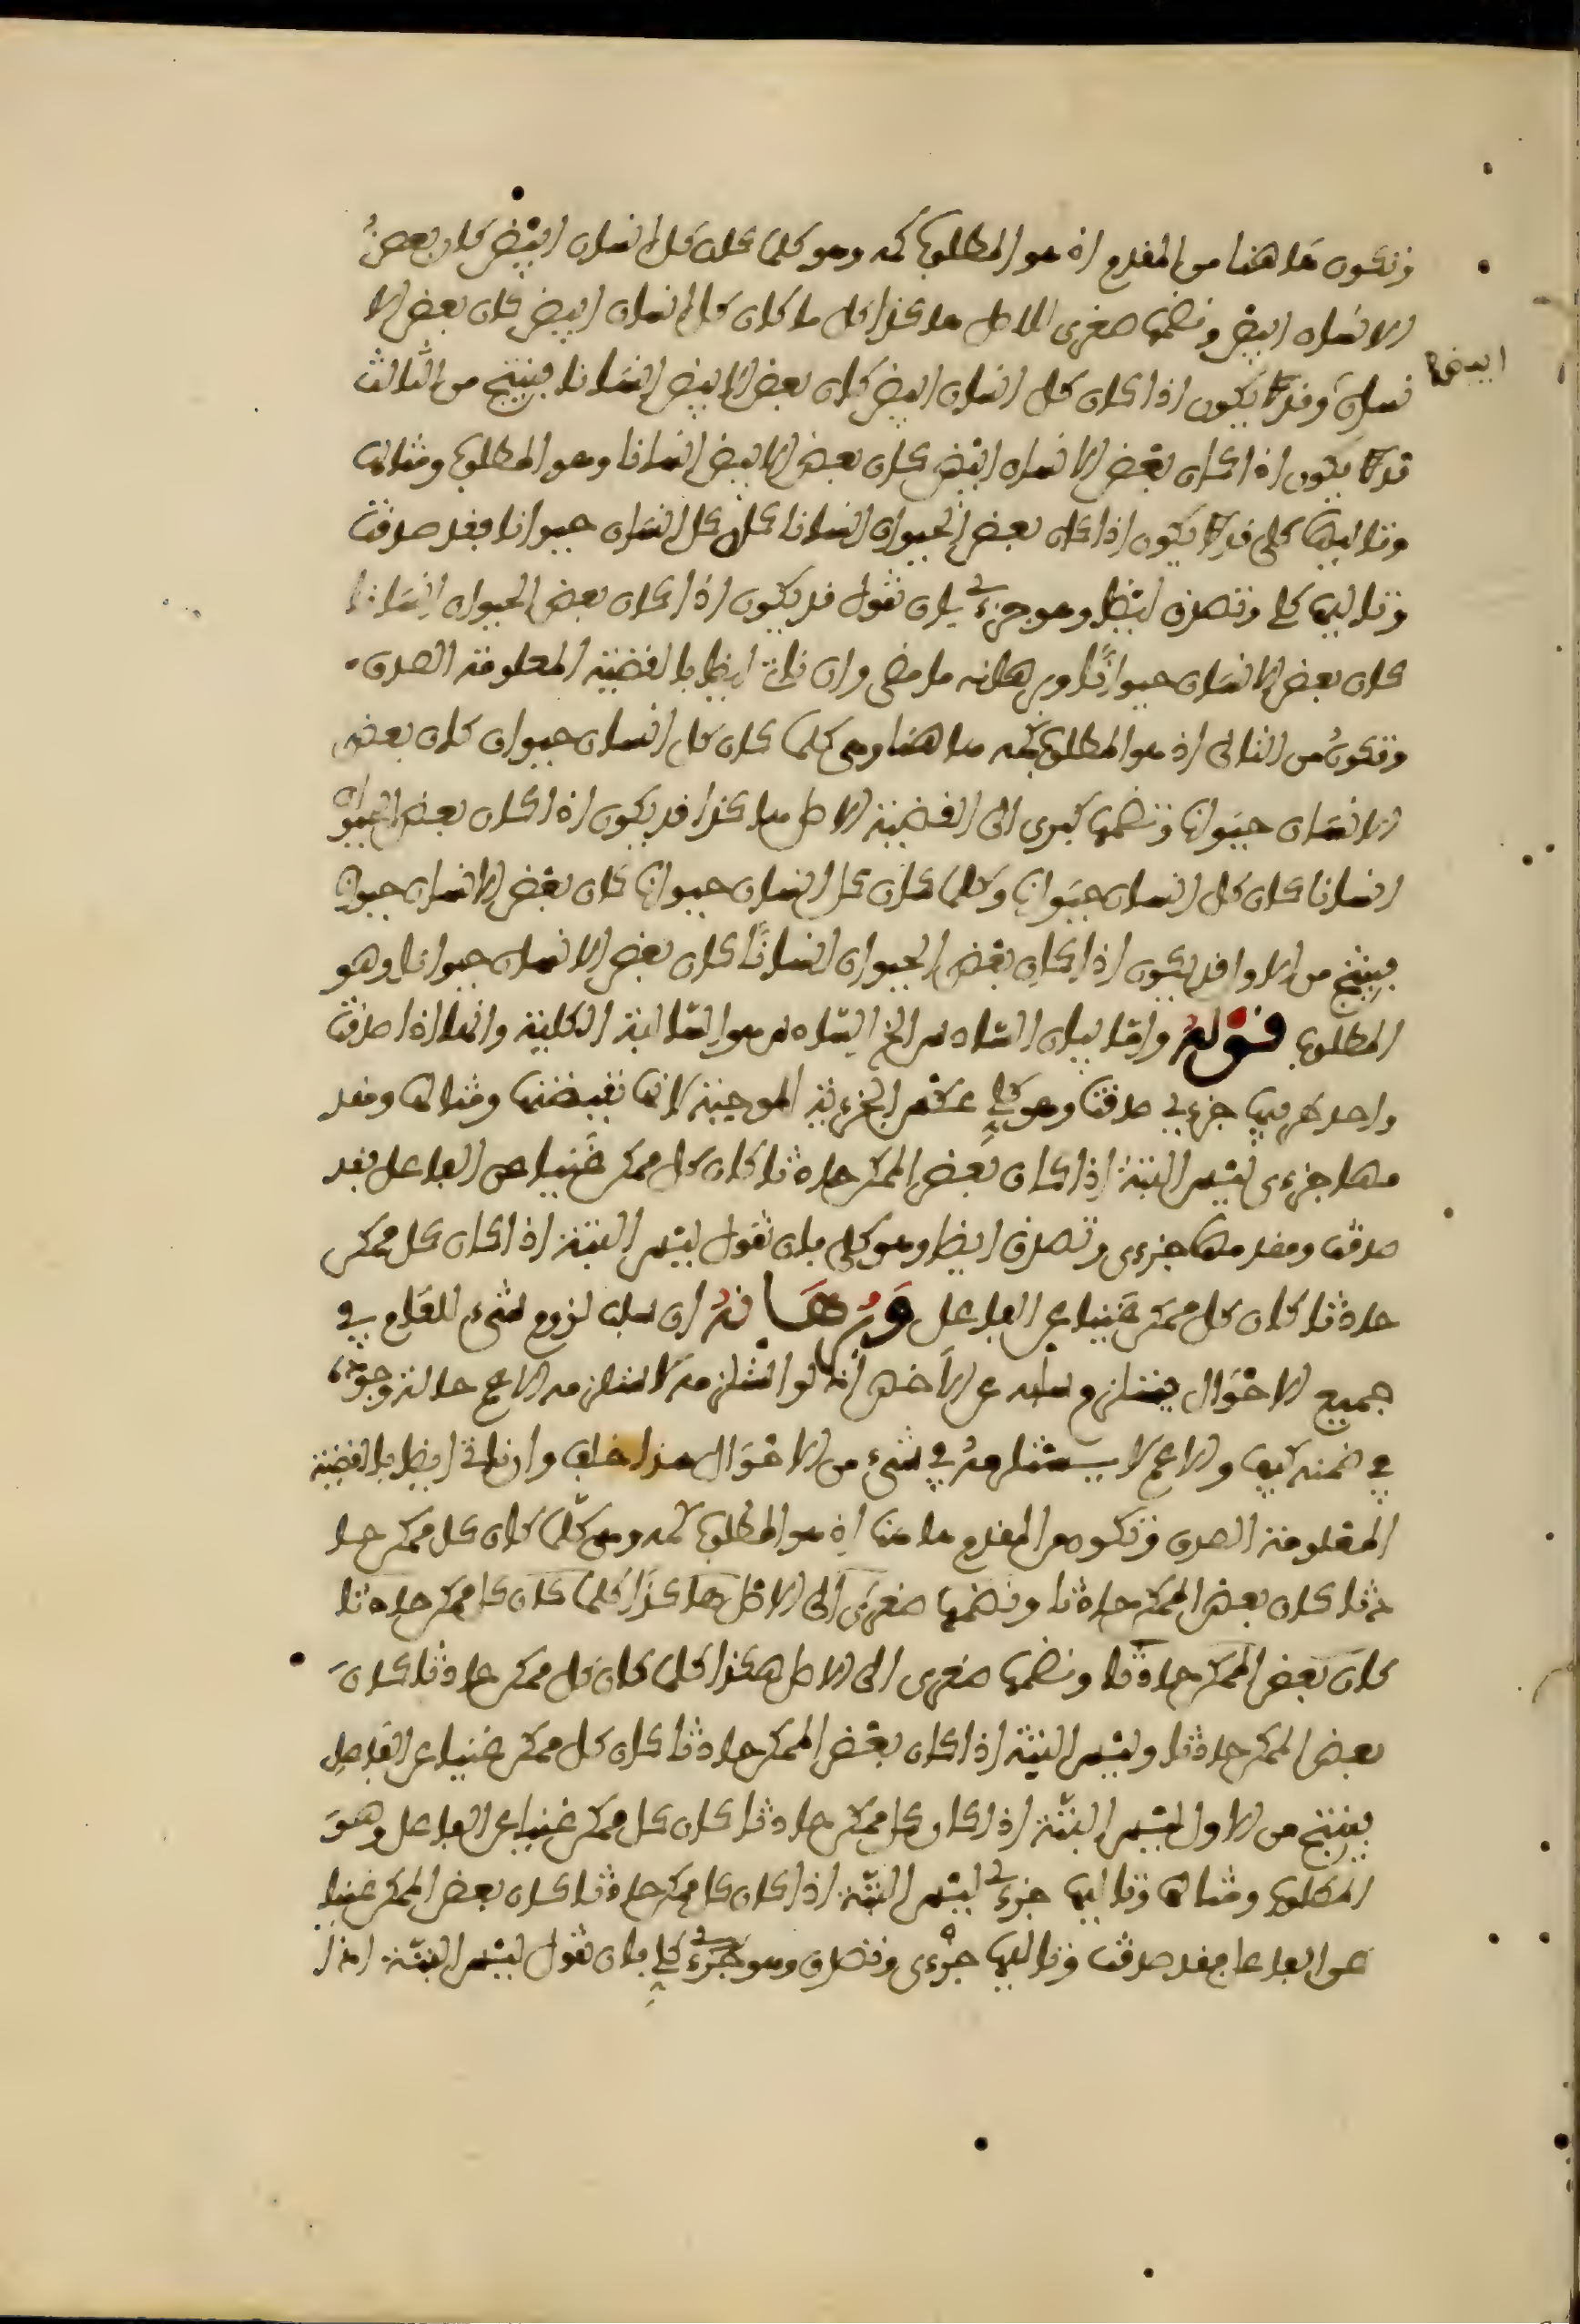 وتكون هاهنا من المقدم اذ هو المطلوب كمه وهو كلما كان كل انسان ابيض كان بعض
الانسان ابيض ونضمها صغرى للاصل هاكذا كل ما كان كل انسان ابيض كان بعض الا
ابيض
نسان وقد لا يكون اذا كان كل انسان ابيض كان بعض الابيض انسانا فينتج من الثالث
قد لا يكون اذا كان بعض الانسان ابيض كان بعض الابيض انسانا وهو المطلوب ومثالها
وتاليها كلي قد لا يكون اذا كان بعض الحيوان انسانا كان كل انسان حيوانا فقد صدقت
وتاليها كلي وتصدق ايضا وهو جزءي بان تقول قد يكون اذا كان بعض الحيوان انسانا
كان بعض الانسان حيوانا وبرهانه ما مضى وان ايضا بالقضية المعلومة الصدق
وتكون من التالي اذ هو المطلوب كمه هاهنا وهي كلما كان كل انسان حيوان كان بعض
الانسان حيوانا وتضمها كبرى الى القضية الاصل هاكذا قد يكون اذا كان بعض الحيوان
انسانا كان كل انسان حيوانا وكلما كان كل انسان حيوانا كان بعض الانسان حيوانا
فينتج من الاول قد يكون اذا كان بعض الحيوان انسانا كان بعض الانسان حيوانا وهو
المطلوب قوله واما بيان السادس الخ السادس هو السالبة الكلية وانها اذا صدقت
واحد طرفيها جزءي صدقت وهو كلي عكس الجزءية الموجبة لانها نقيضتها ومثالها ومقد
مها جزءي ليس البتة اذا كان بعض الممكن حادثا كان كل ممكن غنيا عن الفاعل فقد
صدقت ومقدمها جزءي وتصدق ايضا وهو كلي بان تقول ليس البتة اذا كان كل ممكن
حادثا كان كل ممكن غنيا عن الفاعل وبرهانه ان سلب لزوم شيء للعام في
جميع الاحوال يستلزم سلبه عن الاخص لانه لو استلزمه لاستلزمه الاعم حالة وجوده
في ضمنه كيف والاعم لا يستلزمه في شيء من الاحوال هذا خلف وان ايضا بالقضية
المعلومة الصدق وتكون من المقدم هاهنا اذ هو المطلوب كمه وهي كلما كان كل ممكن حا
دثا كان بعض الممكن حادثا ونضمها صغرى الى الاصل هاكذا كلما كان كل ممكن حادثا
كان بعض الممكن حادثا ونضمها صغرى الى الاصل هكذا كلما كان كل ممكن حادثا كان
بعض الممكن حادثا وليس البتة اذا كان بعض الممكن حادثا كان كل ممكن غنيا عن الفاعل
فينتج من الاول ليس البتة اذا كان كل ممكن حادثا كان كل ممكن غنيا عن الفاعل وهو
المطلوب ومثالها وتاليها جزءي ليس البتة اذا كان كل ممكن حادثا كان بعض الممكن غنيا
عن الفاعل فقد صدقت وتاليها جزءي وتصدق وهو جزءي كلي بان تقول ليس البتة اذا